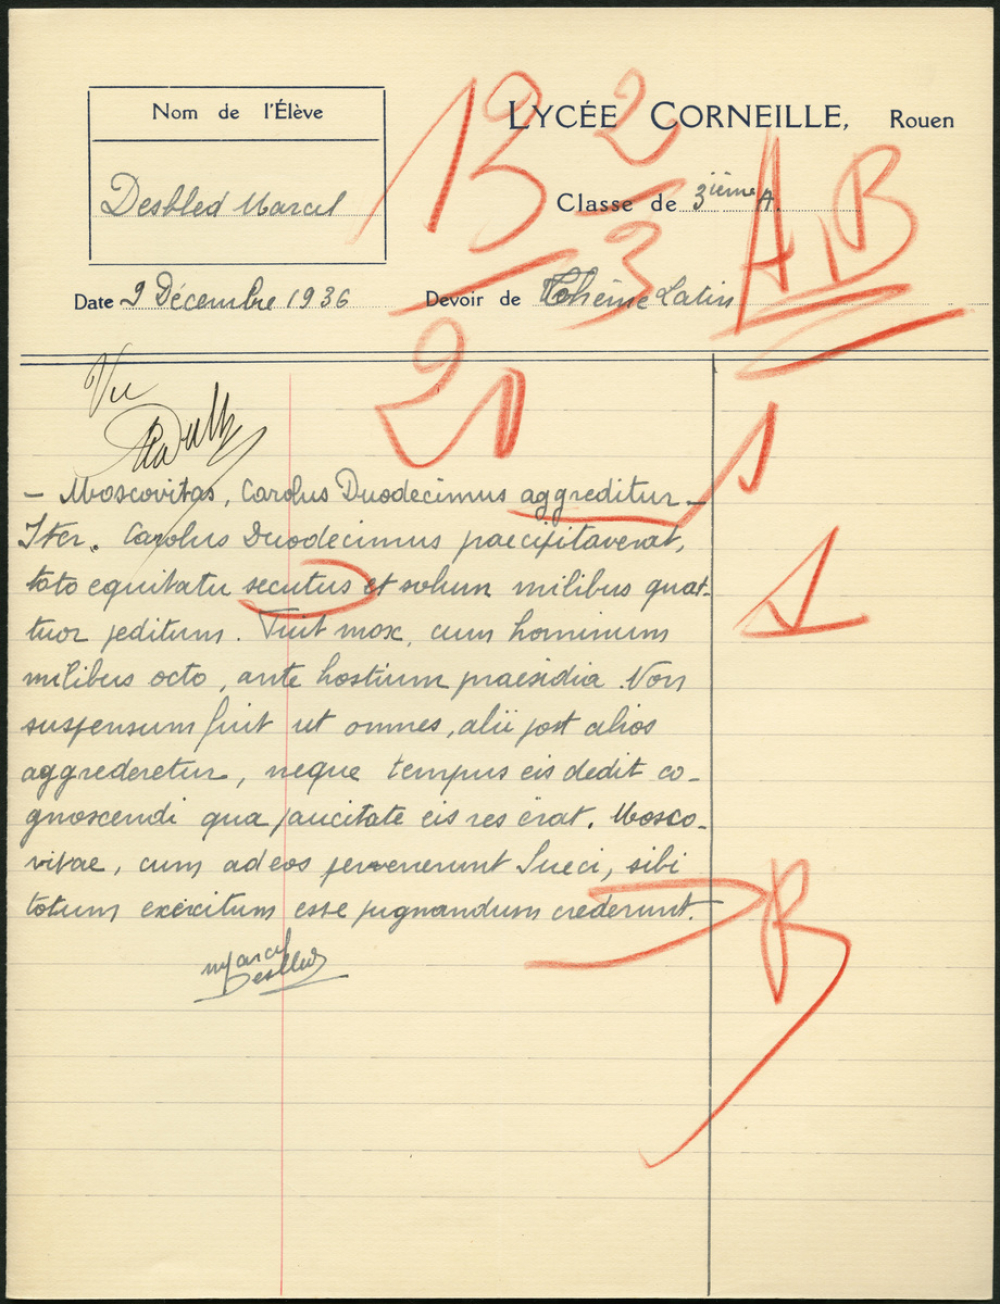 Nom de l'Élève
LYCÉE CORNEILLE, Rouen
Desbled Marcel
Classe de 3ième A.
Date 9 Décembre 1936
Devoir de Thême Latin
13 2/3
20
A,B
Vu
– Moscovitas, Carolus Duodecimus aggreditur –
1
Iter. Carolus Duodecimus praecipitaverat,
toto equitatu secutus et solum milibus quat-
1
tuor peditum. Fuit mox, cum hominum
milibus octo, ante hostium praesidia. Non
suspensum fuit ut omnes, alii post alios
aggrederetur, neque tempus eis dedit co-
gnoscendi qua paucitate eis res erat. Mosco-
vitae, cum ad eos pervenerunt Sueci, sibi
totum exercitum esse pugnandum crederunt.
B
Marcel
Desbled